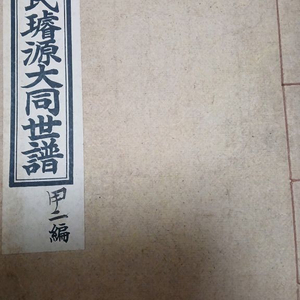 氏璿源大同世譜
甲二編